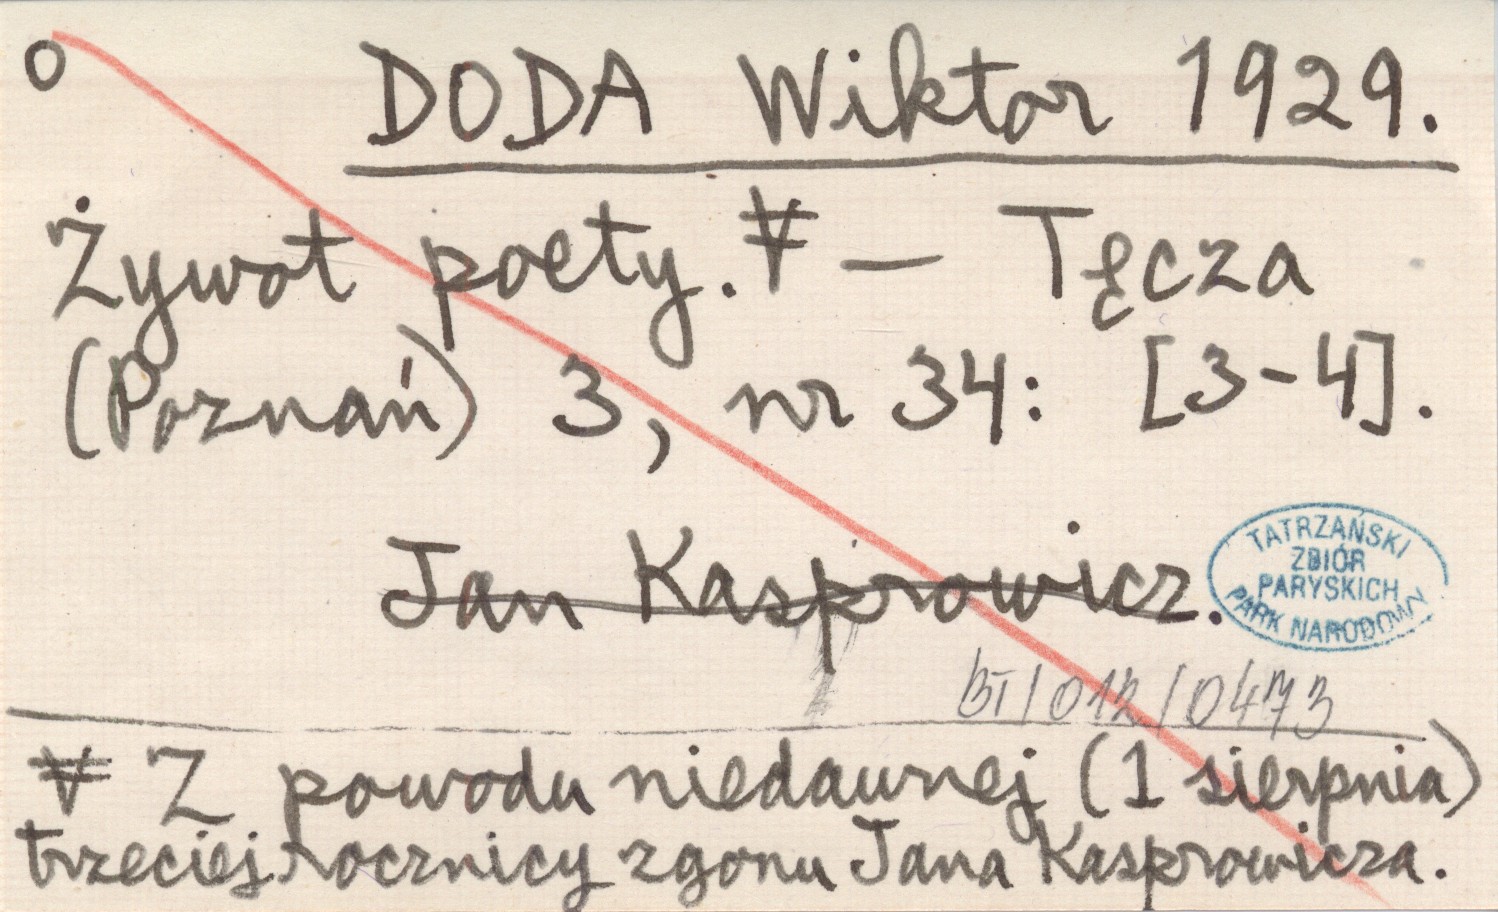 o DODA Wiktor 1929.
Żywot poety.¥ — Tęcza
(Poznań) 3, nr 34: [3-4].
Jan Kasprowicz.
TATRZAŃSKI
ZBIÓR
PARYSKICH
PARK NARODOWY
BT/012/0473
¥ Z powodu niedawnej (1 sierpnia)
trzeciej rocznicy zgonu Jana Kasprowicza.